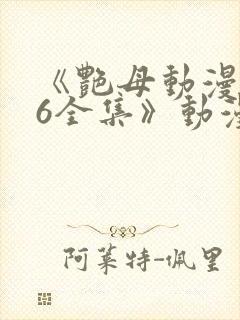 《艷母動漫
6全集》動漫
阿莱特-佩里